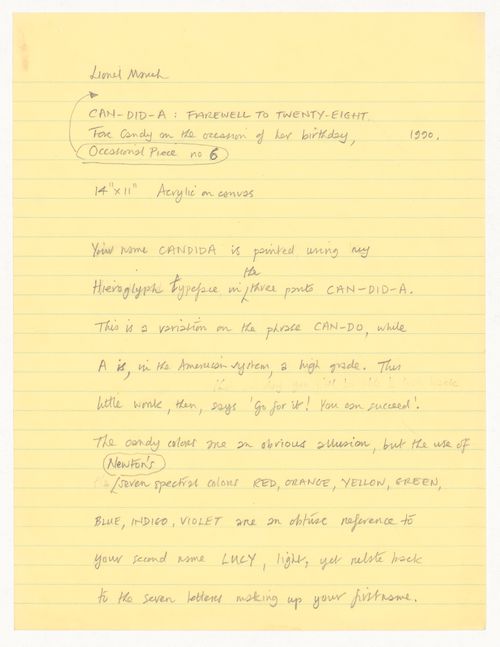 Lionel March
CAN-DID-A : FAREWELL TO TWENTY-EIGHT.
For Candy on the occasion of her birthday, 1990.
Occasional Piece no 6
14"x11" Acrylic on canvas
Your name CANDIDA is painted using my
the
Hieroglyph typeface in three parts CAN-DID-A.
This is a variation on the phrase CAN-DO, while
A is, in the American system, a high grade. This
little work, then, says 'Go for it! You can succeed'.
The candy colors are an obvious allusion, but the use of
Newton's
seven spectral colors RED, ORANGE, YELLOW, GREEN,
BLUE, INDIGO, VIOLET are an obtuse reference to
your second name LUCY, light, yet relate back
to the seven letters making up your first name.